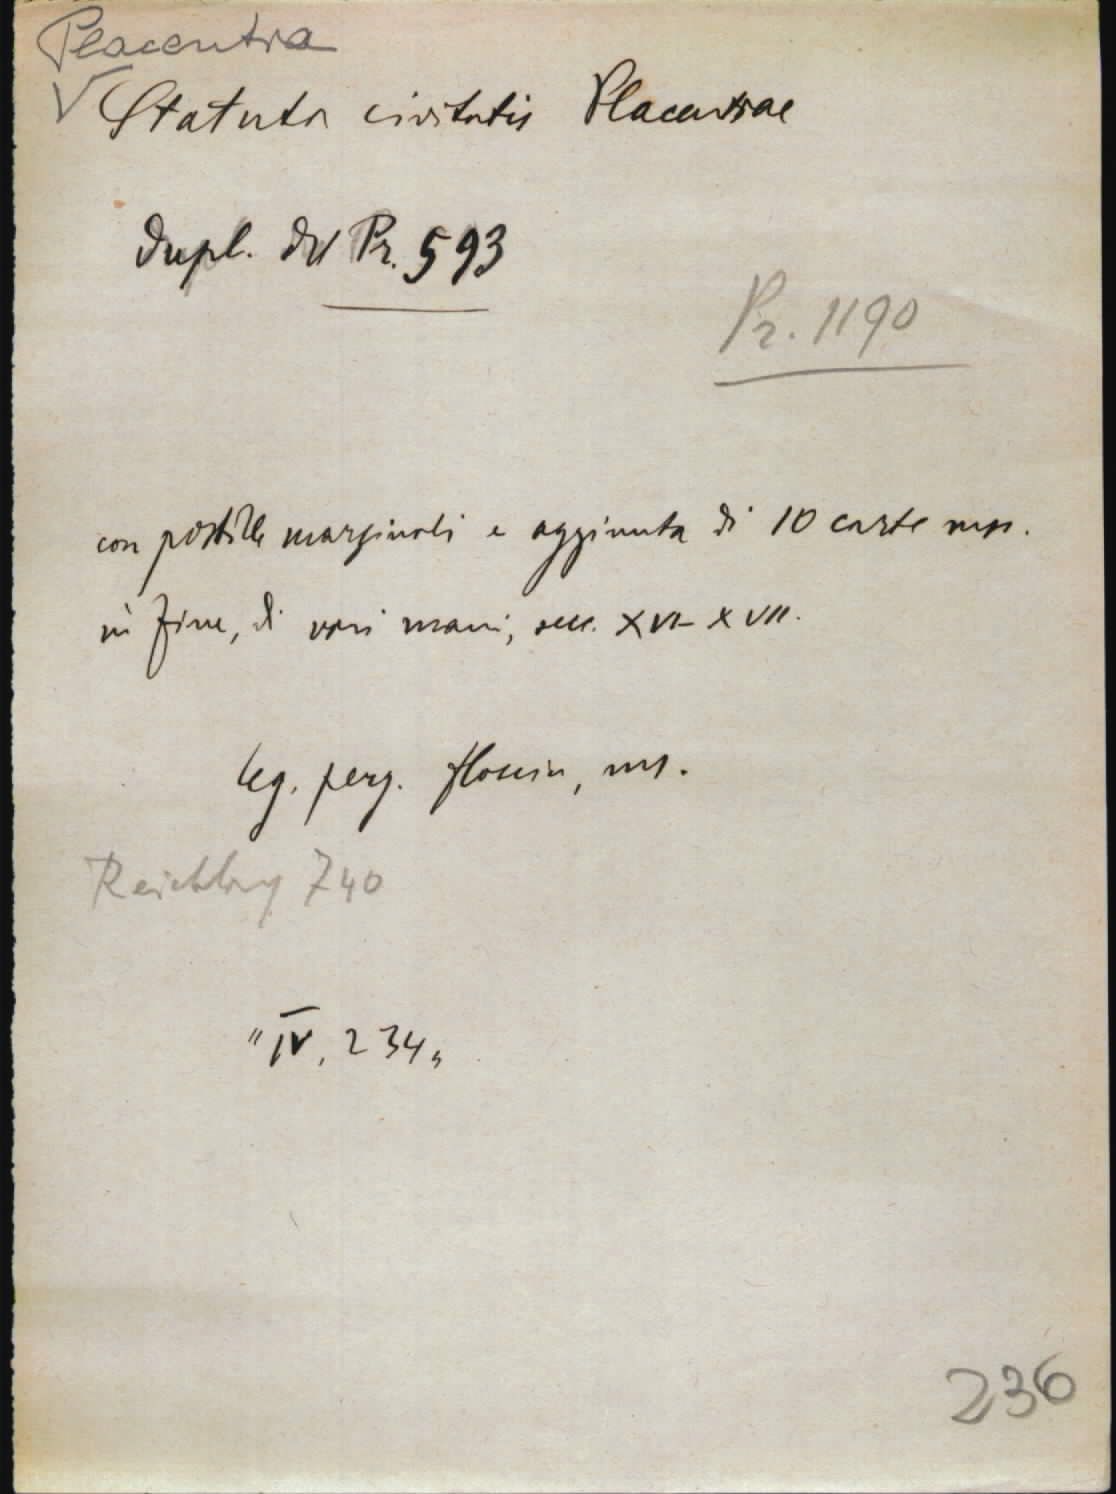 Placentia
√ Statuta civitatis Placentiae
dupl. del Pr. 593
Pr. 1190
con postille marginali e aggiunta di 10 carte mss.
in fine, di varie mani, secc. XVI-XVII.
leg. perg. floscia, ms.
Reichling 740
"IV, 234"
236